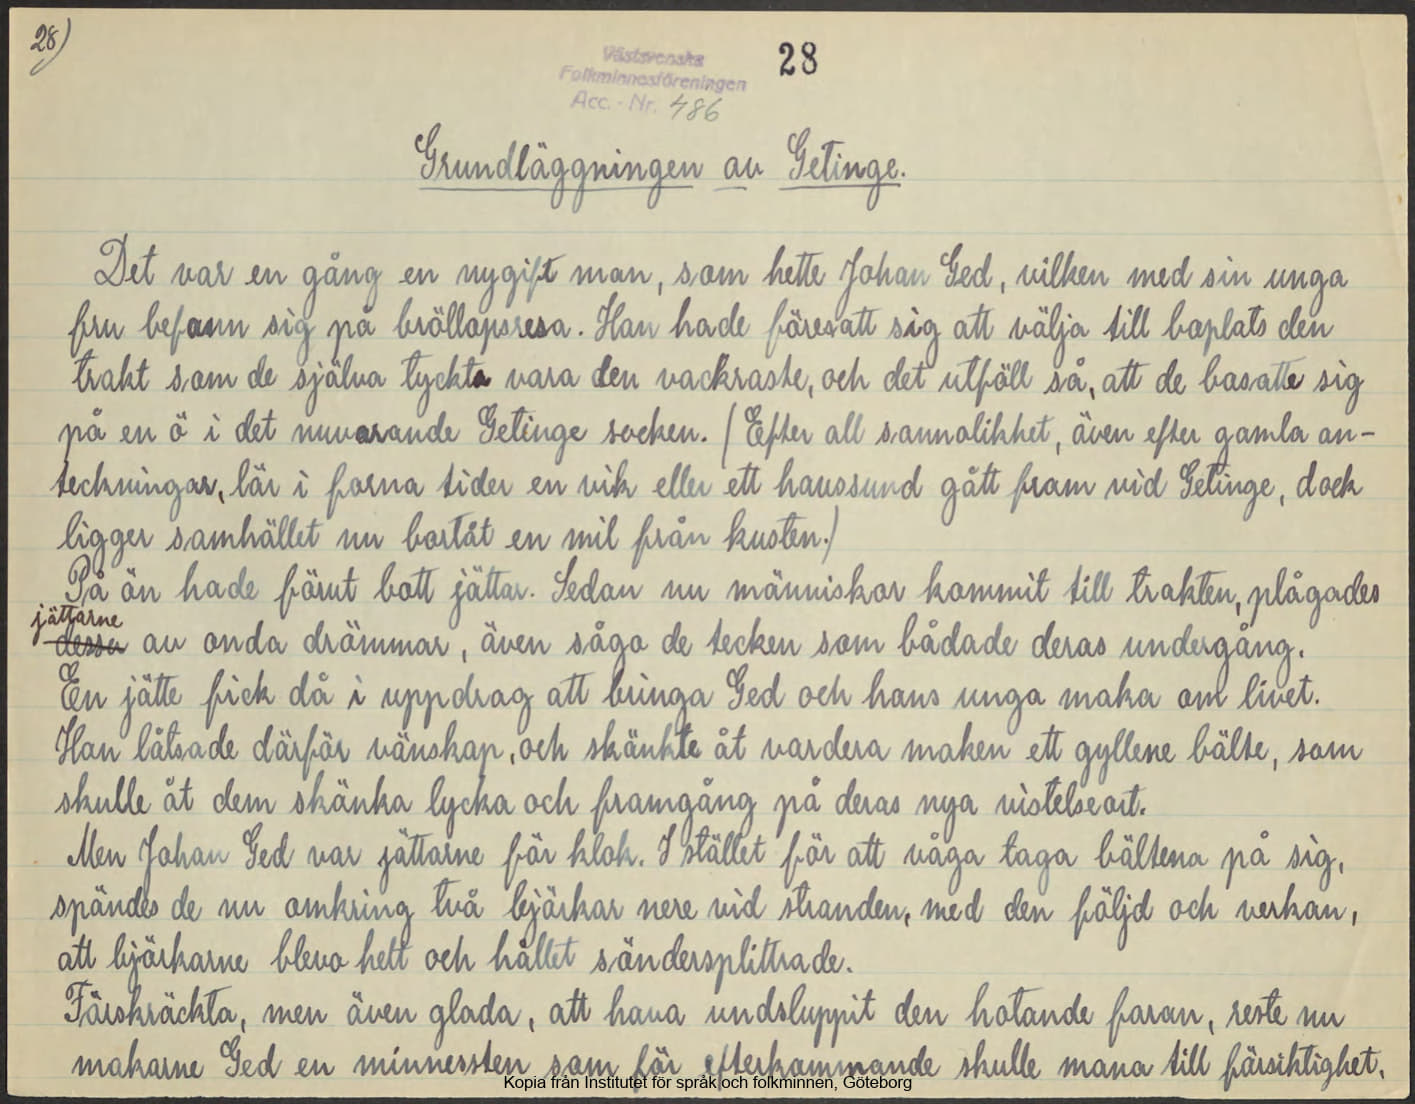 28)
28
Västsvenska
Folkminnesföreningen
Acc. - Nr. 486
Grundläggningen av Getinge.
Det var en gång en nygift man, som hette Johan Ged, vilken med sin unga
fru befann sig på bröllopsresa. Han hade föresatt sig att välja till boplats den
trakt som de själva tyckte vara den vackraste, och det utföll så, att de bosatte sig
på en ö i det nuvarande Getinge socken. (Efter all sannolikhet, även efter gamla an-
teckningar, lär i forna tider en vik eller ett havssund gått fram vid Getinge, dock
ligger samhället nu bortåt en mil från kusten.)
På ön hade förut bott jättar. Sedan nu människor kommit till trakten, plågades
jättarne
dessa av onda drömmar, även sågo de tecken som bådade deras undergång.
En jätte fick då i uppdrag att bringa Ged och hans unga maka om livet.
Han låtsade därför vänskap, och skänkte åt vardera maken ett gyllene bälte, som
skulle åt dem skänka lycka och framgång på deras nya vistelseort.
Men Johan Ged var jättarne för klok. I stället för att våga taga bältena på sig,
spändes de nu omkring två björkar nere vid stranden, med den följd och verkan,
att björkarne blevo helt och hållet söndersplittrade.
Förskräckta, men även glada, att hava undsluppit den hotande faran, reste nu
makarne Ged en minnessten som för efterkommande skulle mana till försiktighet.
Kopia från Institutet för språk och folkminnen, Göteborg